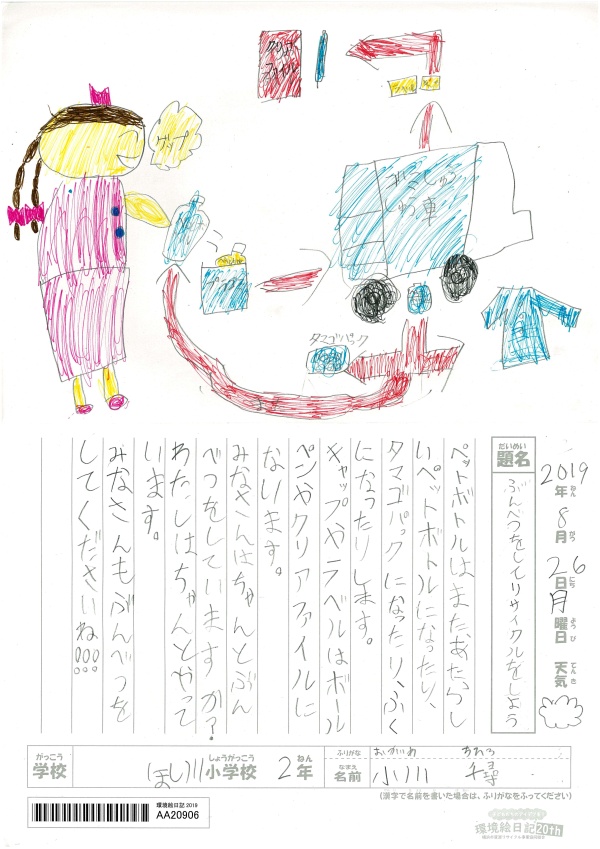 クリア
ファイル
グップ
かいしゅう
しゅう車
タマゴパック
2019年ねん
8月がつ
26日にち
月曜日ようび
天気てんき
だいめい
題名
ぶんべつをしてリサイクルをしよう
ペットボトルはまた、あたらし
いペットボトルになったり、
タマゴパックになったり、ふく
になったりします。
キャップやラベルはボール
ペンやクリアファイルに
なります。
みなさんはちゃんとぶん
べつをしていますか？
わたしはちゃんとやって
います。
みなさんもぶんべつを
してくださいね!!!
がっこう
学校
しょうがっこう
ほし川小学校
ねん
2年
ふりがな
なまえ
名前
小川
(漢字で名前を書いた場合は、ふりがなをふってください)
環境絵日記 2019
AA20906
環境絵日記20th